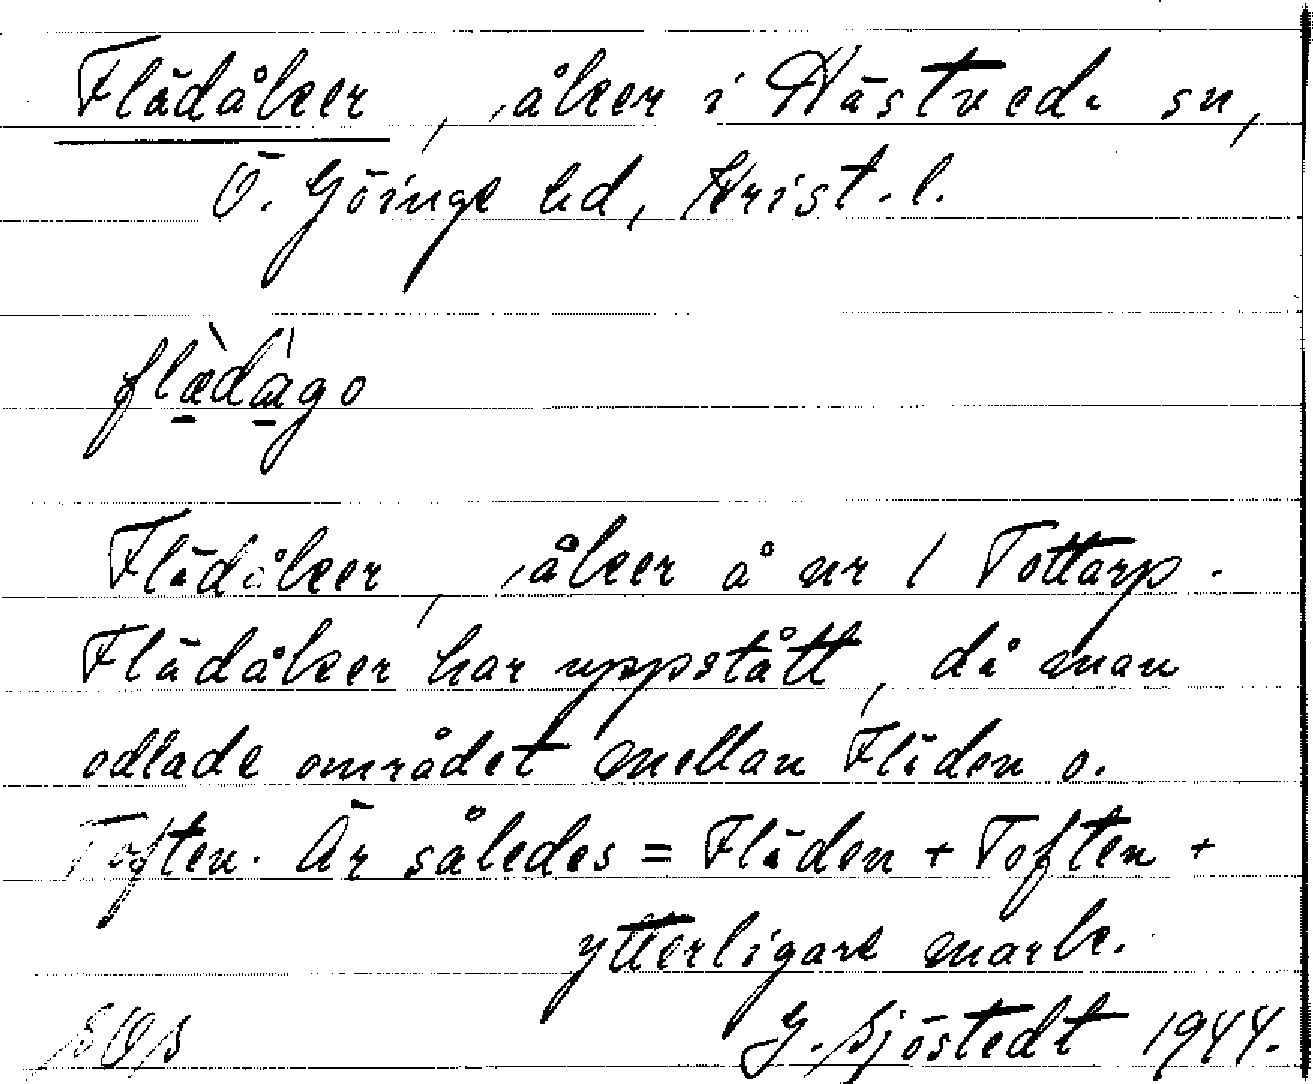 Flädåker, åker i Hästveda sn,
Ö. Göinge hd, Krist. l.
flæ̀dágo
Flädåker, åker å nr 1 Tottarp.
Flädåker har uppstått, då man
odlade området mellan Fläden o.
Toften. Är således = Fläden + Toften +
ytterligare mark.
G. Sjöstedt 1944.